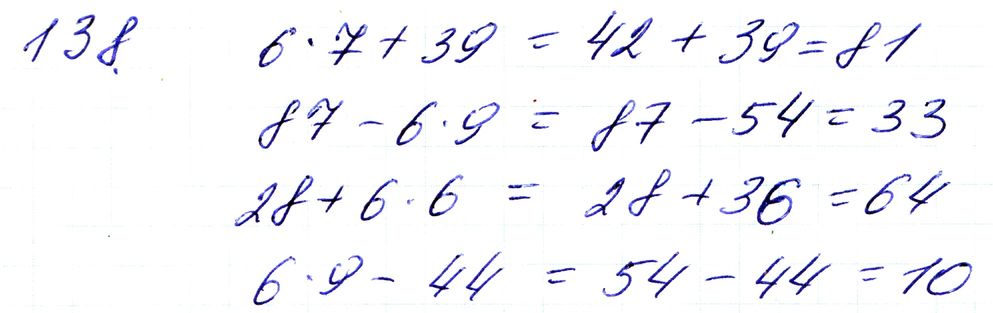 138. 6·7+39 = 42+39=81
87-6·9 = 87-54=33
28+6·6 = 28+36=64
6·9-44 = 54-44=10